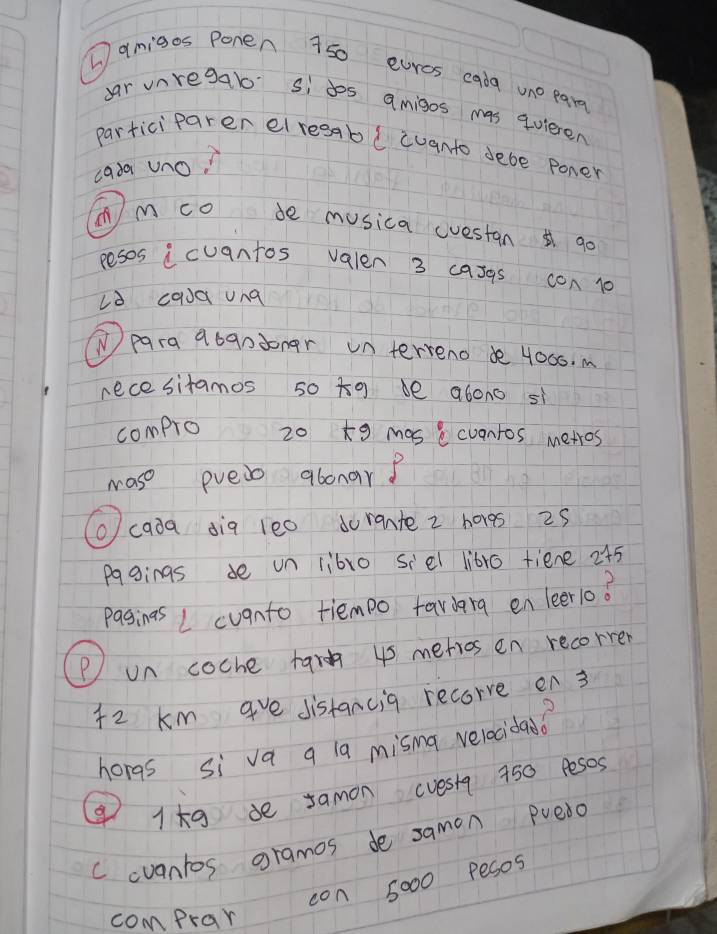 L amigos Ponen 750 euros cada uno para
dar unregalo. si dos amigos mas quieren
participaren el regalo ¿ cuanto debe Poner
cada uno?
M m co de musica cuestan $ 90
pesos ¿cuantos valen 3 cajas con 10
cd cada una
N para abandonar un terreno de 4000.m
nece sitamos 50 kg de abono si
compro 20 kg mas ¿cuantos metros
maso puedo abonar?
O cada dia leo durante 2 horas 25
Paginas de un libro si el libro tiene 275
paginas ¿ cuanto tiempo tardara en leerlo?
P un coche tarda 45 metros en recorrer
72 km que distancia recorre en 3
horas si va a la misma velocidad?
q 1 kg de jamon cuesta 750 pesos
¿ cuantos gramos de jamon puedo
comprar con 5000 pesos